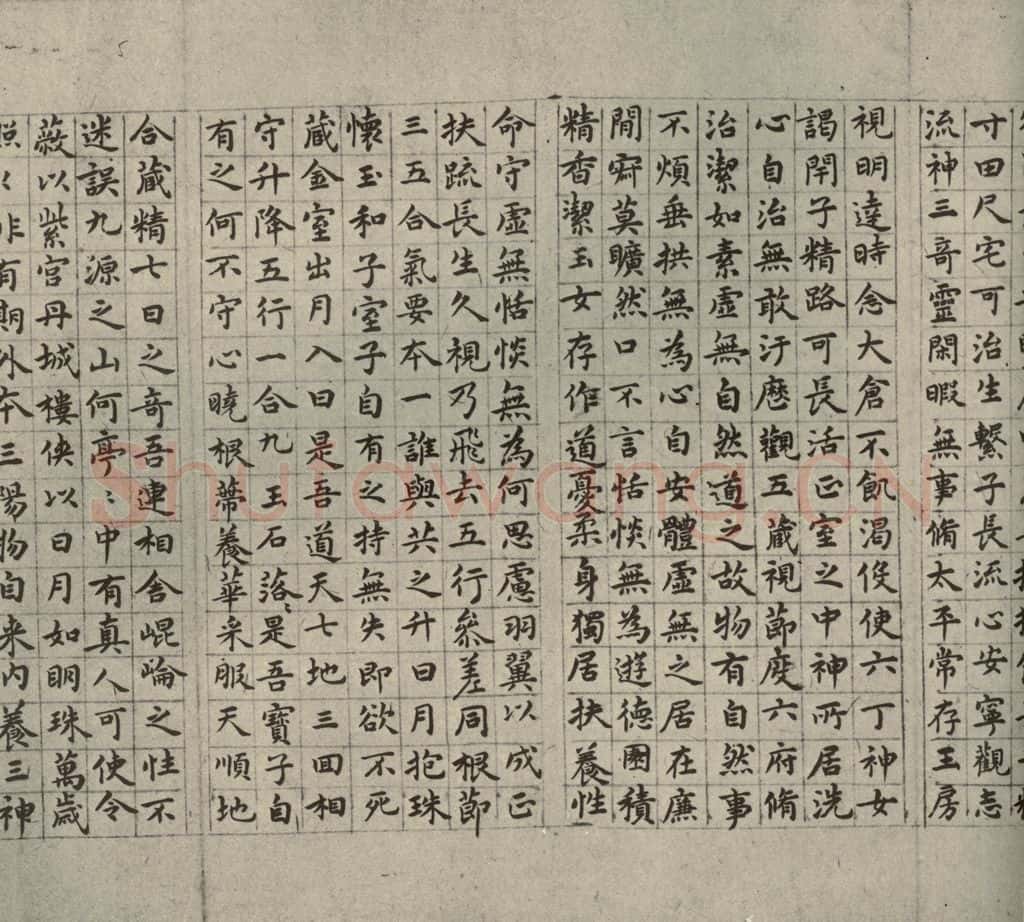 寸田尺宅可治生繫子長流心安寧觀志
流神三奇靈閑暇無事脩太平常存玉房
視明達時念大倉不飢渴伇使六丁神女
謁閇子精路可長活正室之中神所居洗
心自治無敢汙歷觀五藏視莭度六府脩
治潔如素虛無自然道之故物有自然事
不煩垂拱無為心自安體虛無之居在廉
閒寂莫曠然口不言恬惔無為遊德園積
精香潔玉女存作道憂柔身獨居扶養性
命守虛無恬惔無為何思慮羽翼以成正
扶疏長生久視乃飛去五行參差同根莭
三五合氣要本一誰與共之升日月抱珠
懷玉和子室子自有之持無失即欲不死
藏金室出月入日是吾道天七地三回相
守升降五行一合九玉石落〻是吾寶子自
有之何不守心曉根蒂養華采服天順地
合藏精七日之奇吾連相舍崐崘之性不
迷誤九源之山何亭〻中有真人可使令
蔽以紫宮丹城樓俠以日月如明珠萬歲
照〻非有期外本三陽物自来内養三神
Shufawang.CN